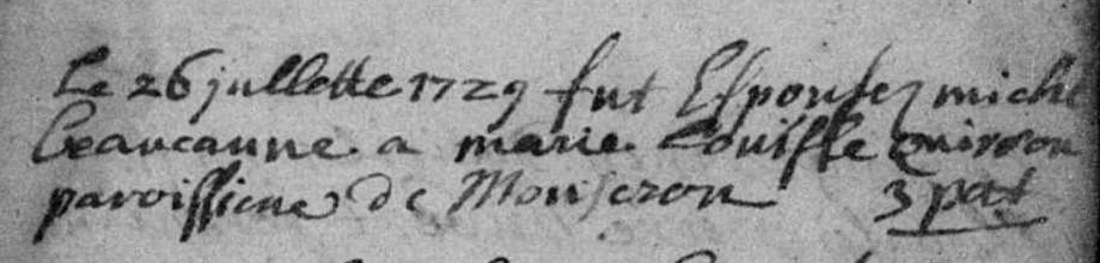 Le 26 jullette 1729 fut Espousez miche
Beaucanne a marie Louisse
paroissiene de Mouscron 3 pat